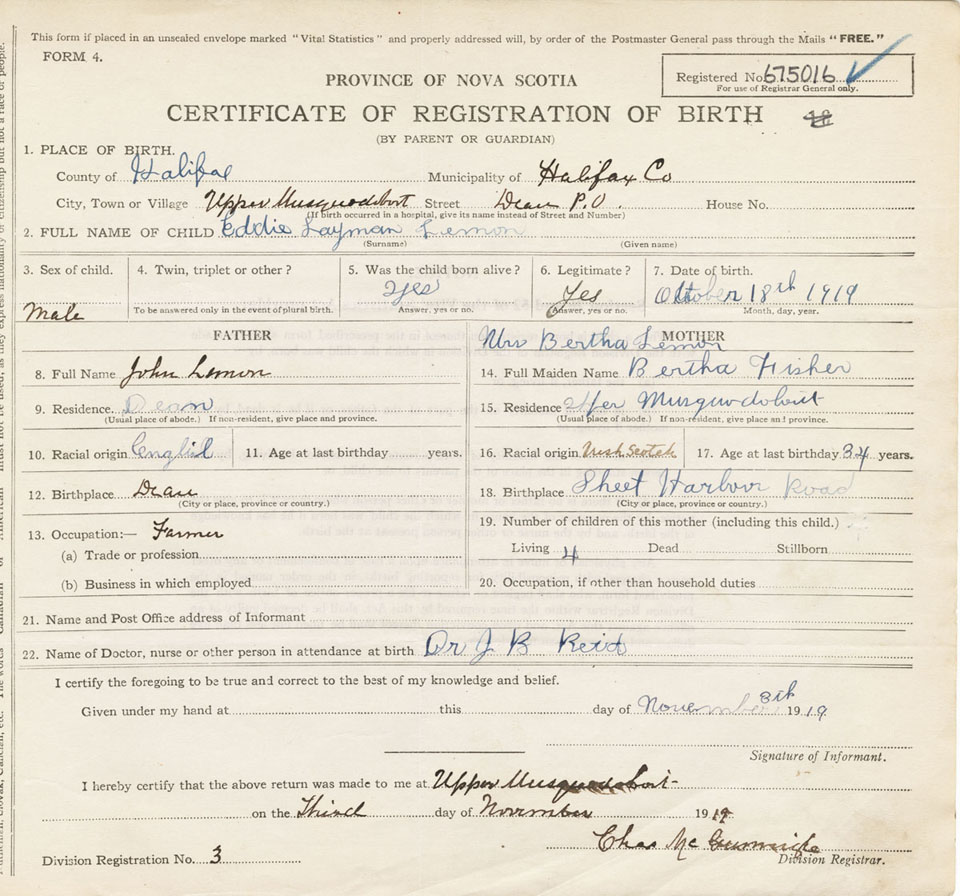 This form if placed in an unsealed envelope marked "Vital Statistics" and properly addressed will, by order of the Postmaster General pass through the Mails "FREE."
FORM 4.
Registered No. 675016
For use of Registrar General only.
PROVINCE OF NOVA SCOTIA
CERTIFICATE OF REGISTRATION OF BIRTH
(BY PARENT OR GUARDIAN)
1. PLACE OF BIRTH.
County of Halifax Municipality of Halifax Co
City, Town or Village Upper Musquodoboit Street Dean P.O. House No.
(If birth occurred in a hospital, give its name instead of Street and Number)
2. FULL NAME OF CHILD Eddie Layman Lemon
(Surname) (Given name)
3. Sex of child. 4. Twin, triplet or other? 5. Was the child born alive? 6. Legitimate? 7. Date of birth.
Male Yes Yes October 18th 1919
To be answered only in the event of plural birth. Answer, yes or no. Answer, yes or no. Month, day, year.
FATHER MOTHER
Mrs Bertha Lemon
8. Full Name John Lemon 14. Full Maiden Name Bertha Fisher
9. Residence. Dean 15. Residence Musquodoboit
(Usual place of abode.) If non-resident, give place and province. (Usual place of abode.) If non-resident, give place and province.
10. Racial origin English 11. Age at last birthday years. 16. Racial origin Irish Scotch 17. Age at last birthday 34 years.
12. Birthplace Dean 18. Birthplace Sheet Harbour Road
(City or place, province or country.) (City or place, province or country.)
13. Occupation:— Farmer 19. Number of children of this mother (including this child.)
(a) Trade or profession Living 4 Dead Stillborn
(b) Business in which employed 20. Occupation, if other than household duties
21. Name and Post Office address of Informant
22. Name of Doctor, nurse or other person in attendance at birth Dr J B Reid
I certify the foregoing to be true and correct to the best of my knowledge and belief.
Given under my hand at this day of November 3th 1919
Signature of Informant.
I hereby certify that the above return was made to me at Upper Musquodoboit
on the Third day of November 1919
Chas Mc
Division Registration No. 3 Division Registrar.